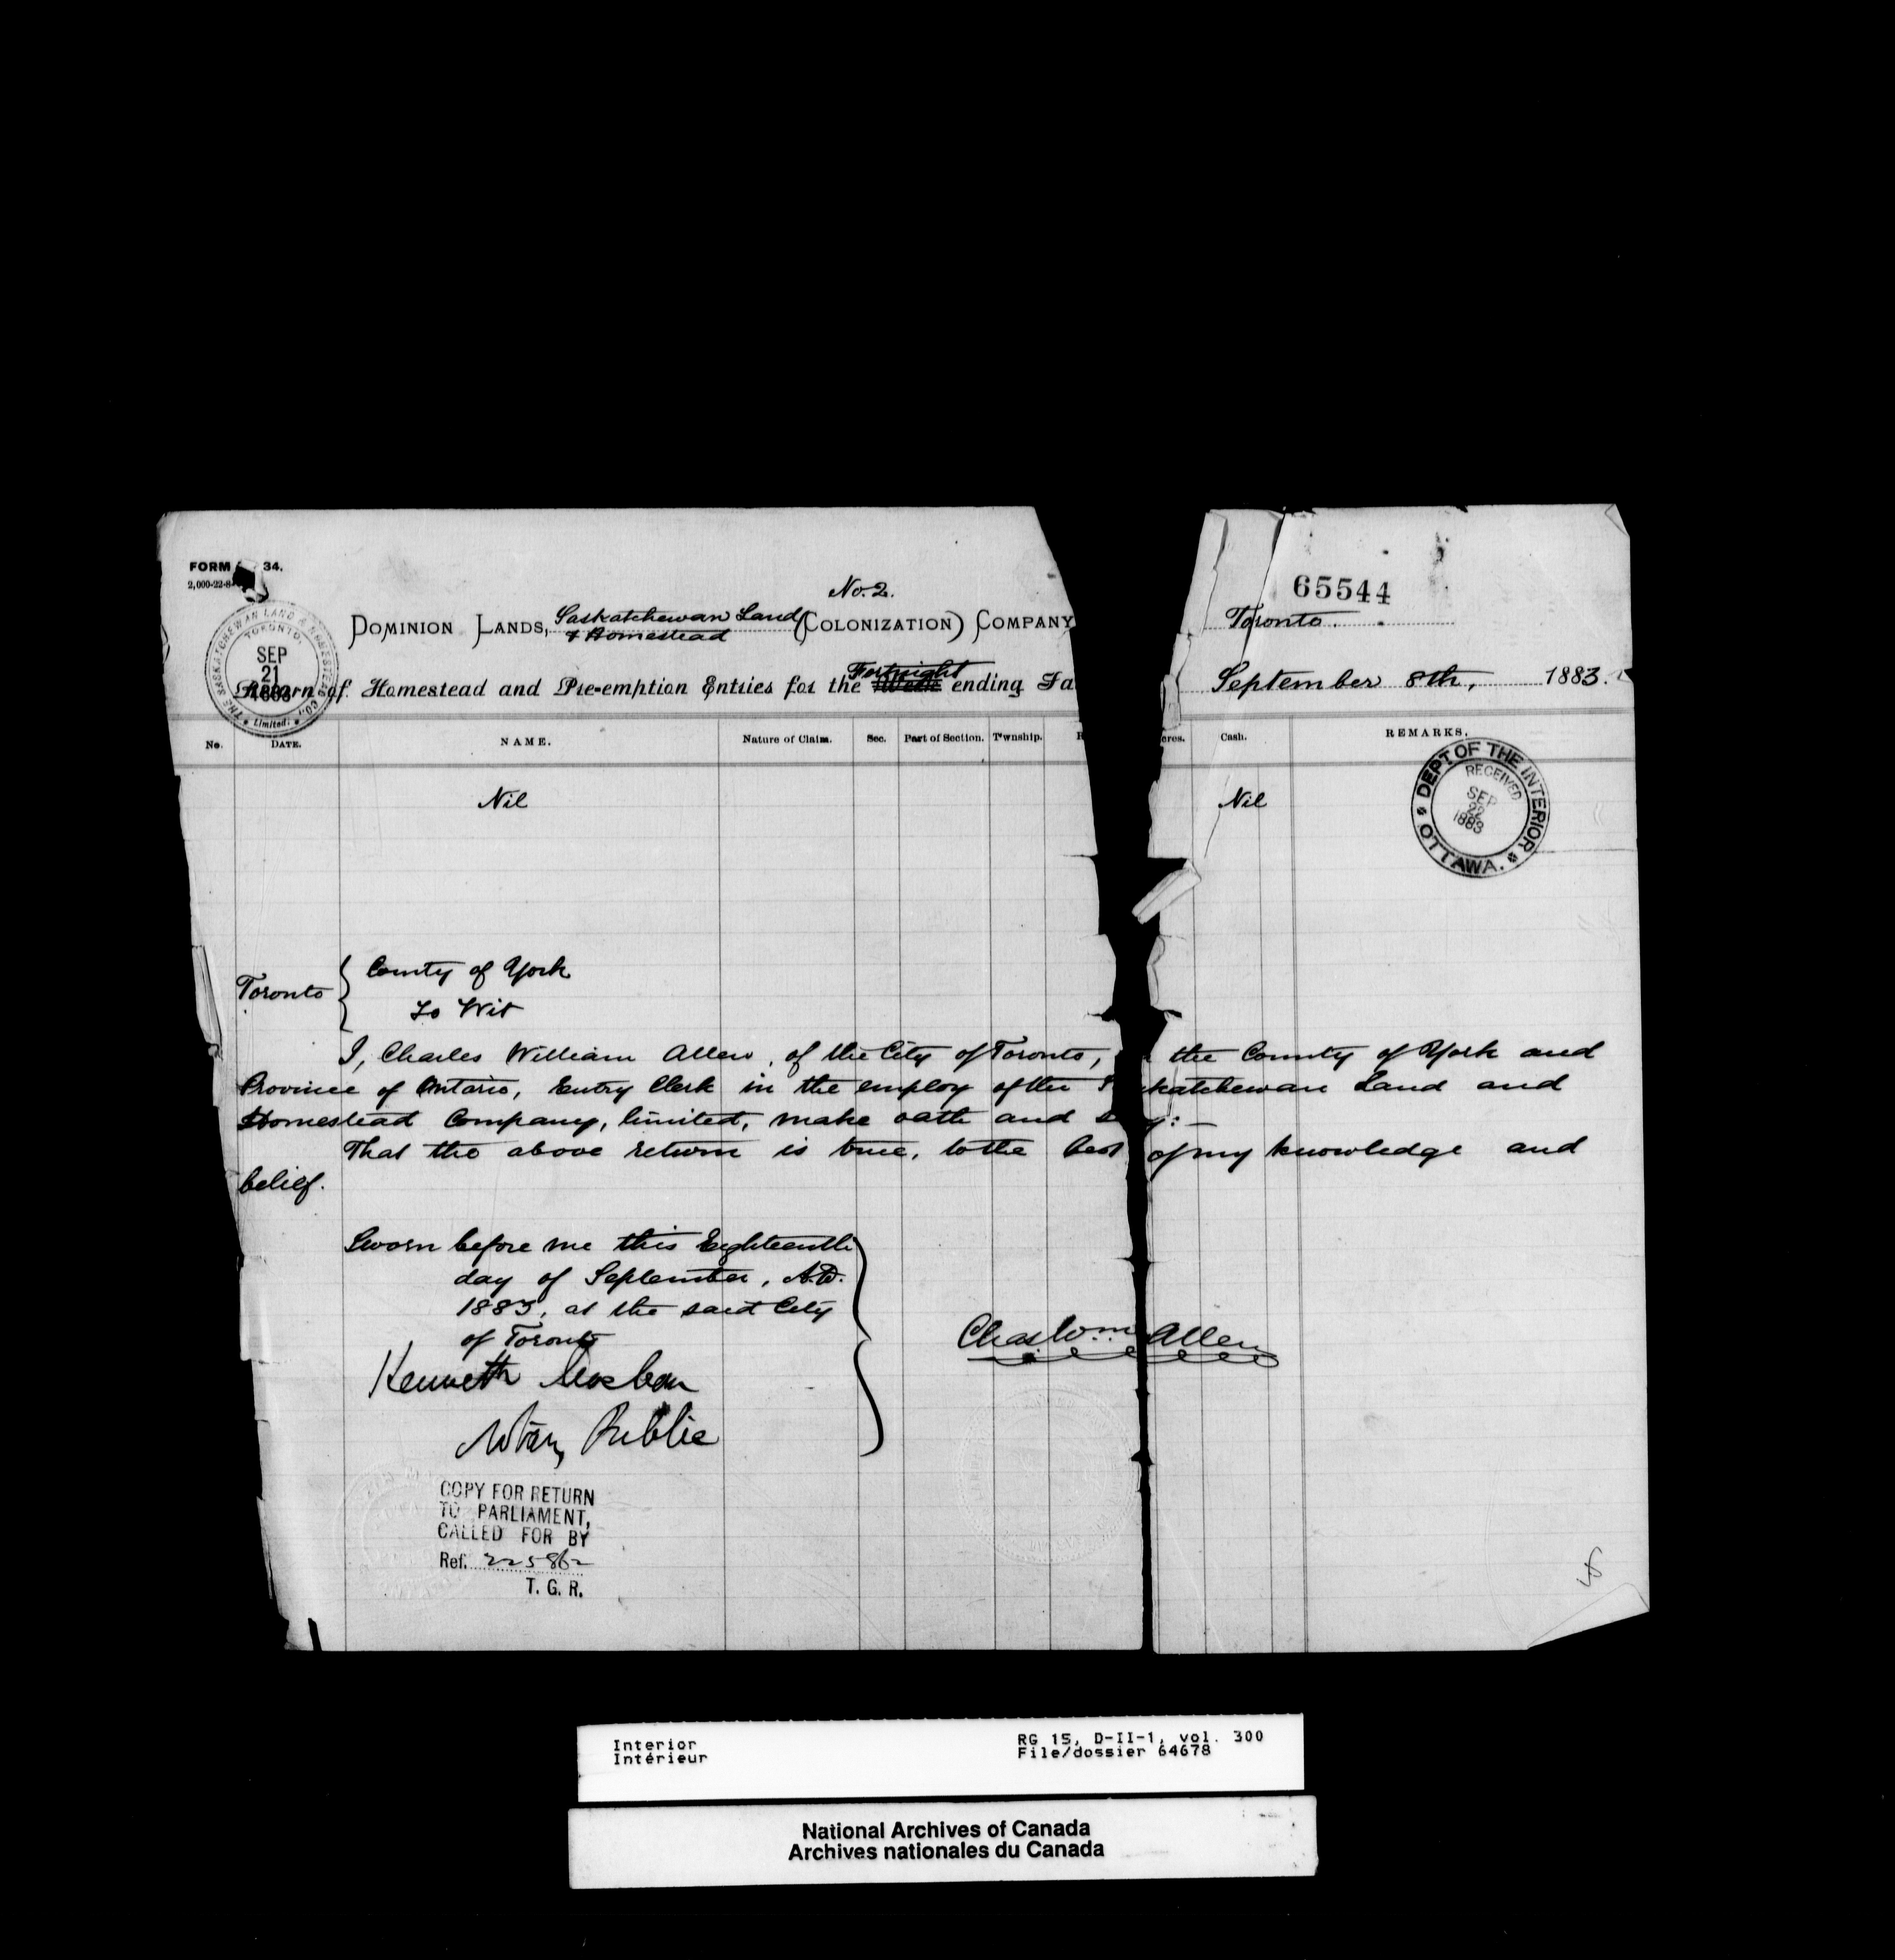 FORM 34.
2,000-22-8-
No. 2.
65544
DOMINION LANDS, Saskatchewan Land & Homestead (COLONIZATION) COMPANY
Toronto.
THE SASKATCHEWAN LAND & HOMESTEAD CO., Limited. TORONTO.
SEP
21
1883
Return of Homestead and Pre-emption Entries for the Week Fortnight ending Sa
September 8th, 1883.
No. DATE. NAME. Nature of Claim. Sec. Part of Section. T'wnship. R cres. Cash. REMARKS.
DEPT OF THE INTERIOR OTTAWA.
RECEIVED
SEP
22
1883
Nil Nil
Toronto { County of York
To Wit
I, Charles William Allen, of the City of Toronto, the County of York and
Province of Ontario, Entry Clerk in the employ of the S katchewan Land and
Homestead Company, limited, make oath and s y:-
That the above return is true, to the best of my knowledge and
belief.
Sworn before me this Eighteenth
day of September, A.D.
1883, at the said City
of Toronto
Chas Wm. Allen
Kenneth
Notary Public
COPY FOR RETURN
TO PARLIAMENT,
CALLED FOR BY
Ref. 225862
T. G. R.
Interior
Intérieur
RG 15, D-II-1, vol. 300
File/dossier 64678
National Archives of Canada
Archives nationales du Canada